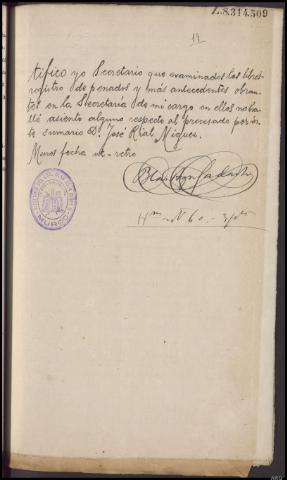 Z.8.314.509
19
tifico yo Secretario que examinados los libros
registro de penados y más antecedentes obran-
tes en la Secretaría de mi cargo en ellos no ha-
llé asiento alguno respecto al procesado por és-
te sumario D. José Rial Migues.
Muros fecha ut-retro
MUROS